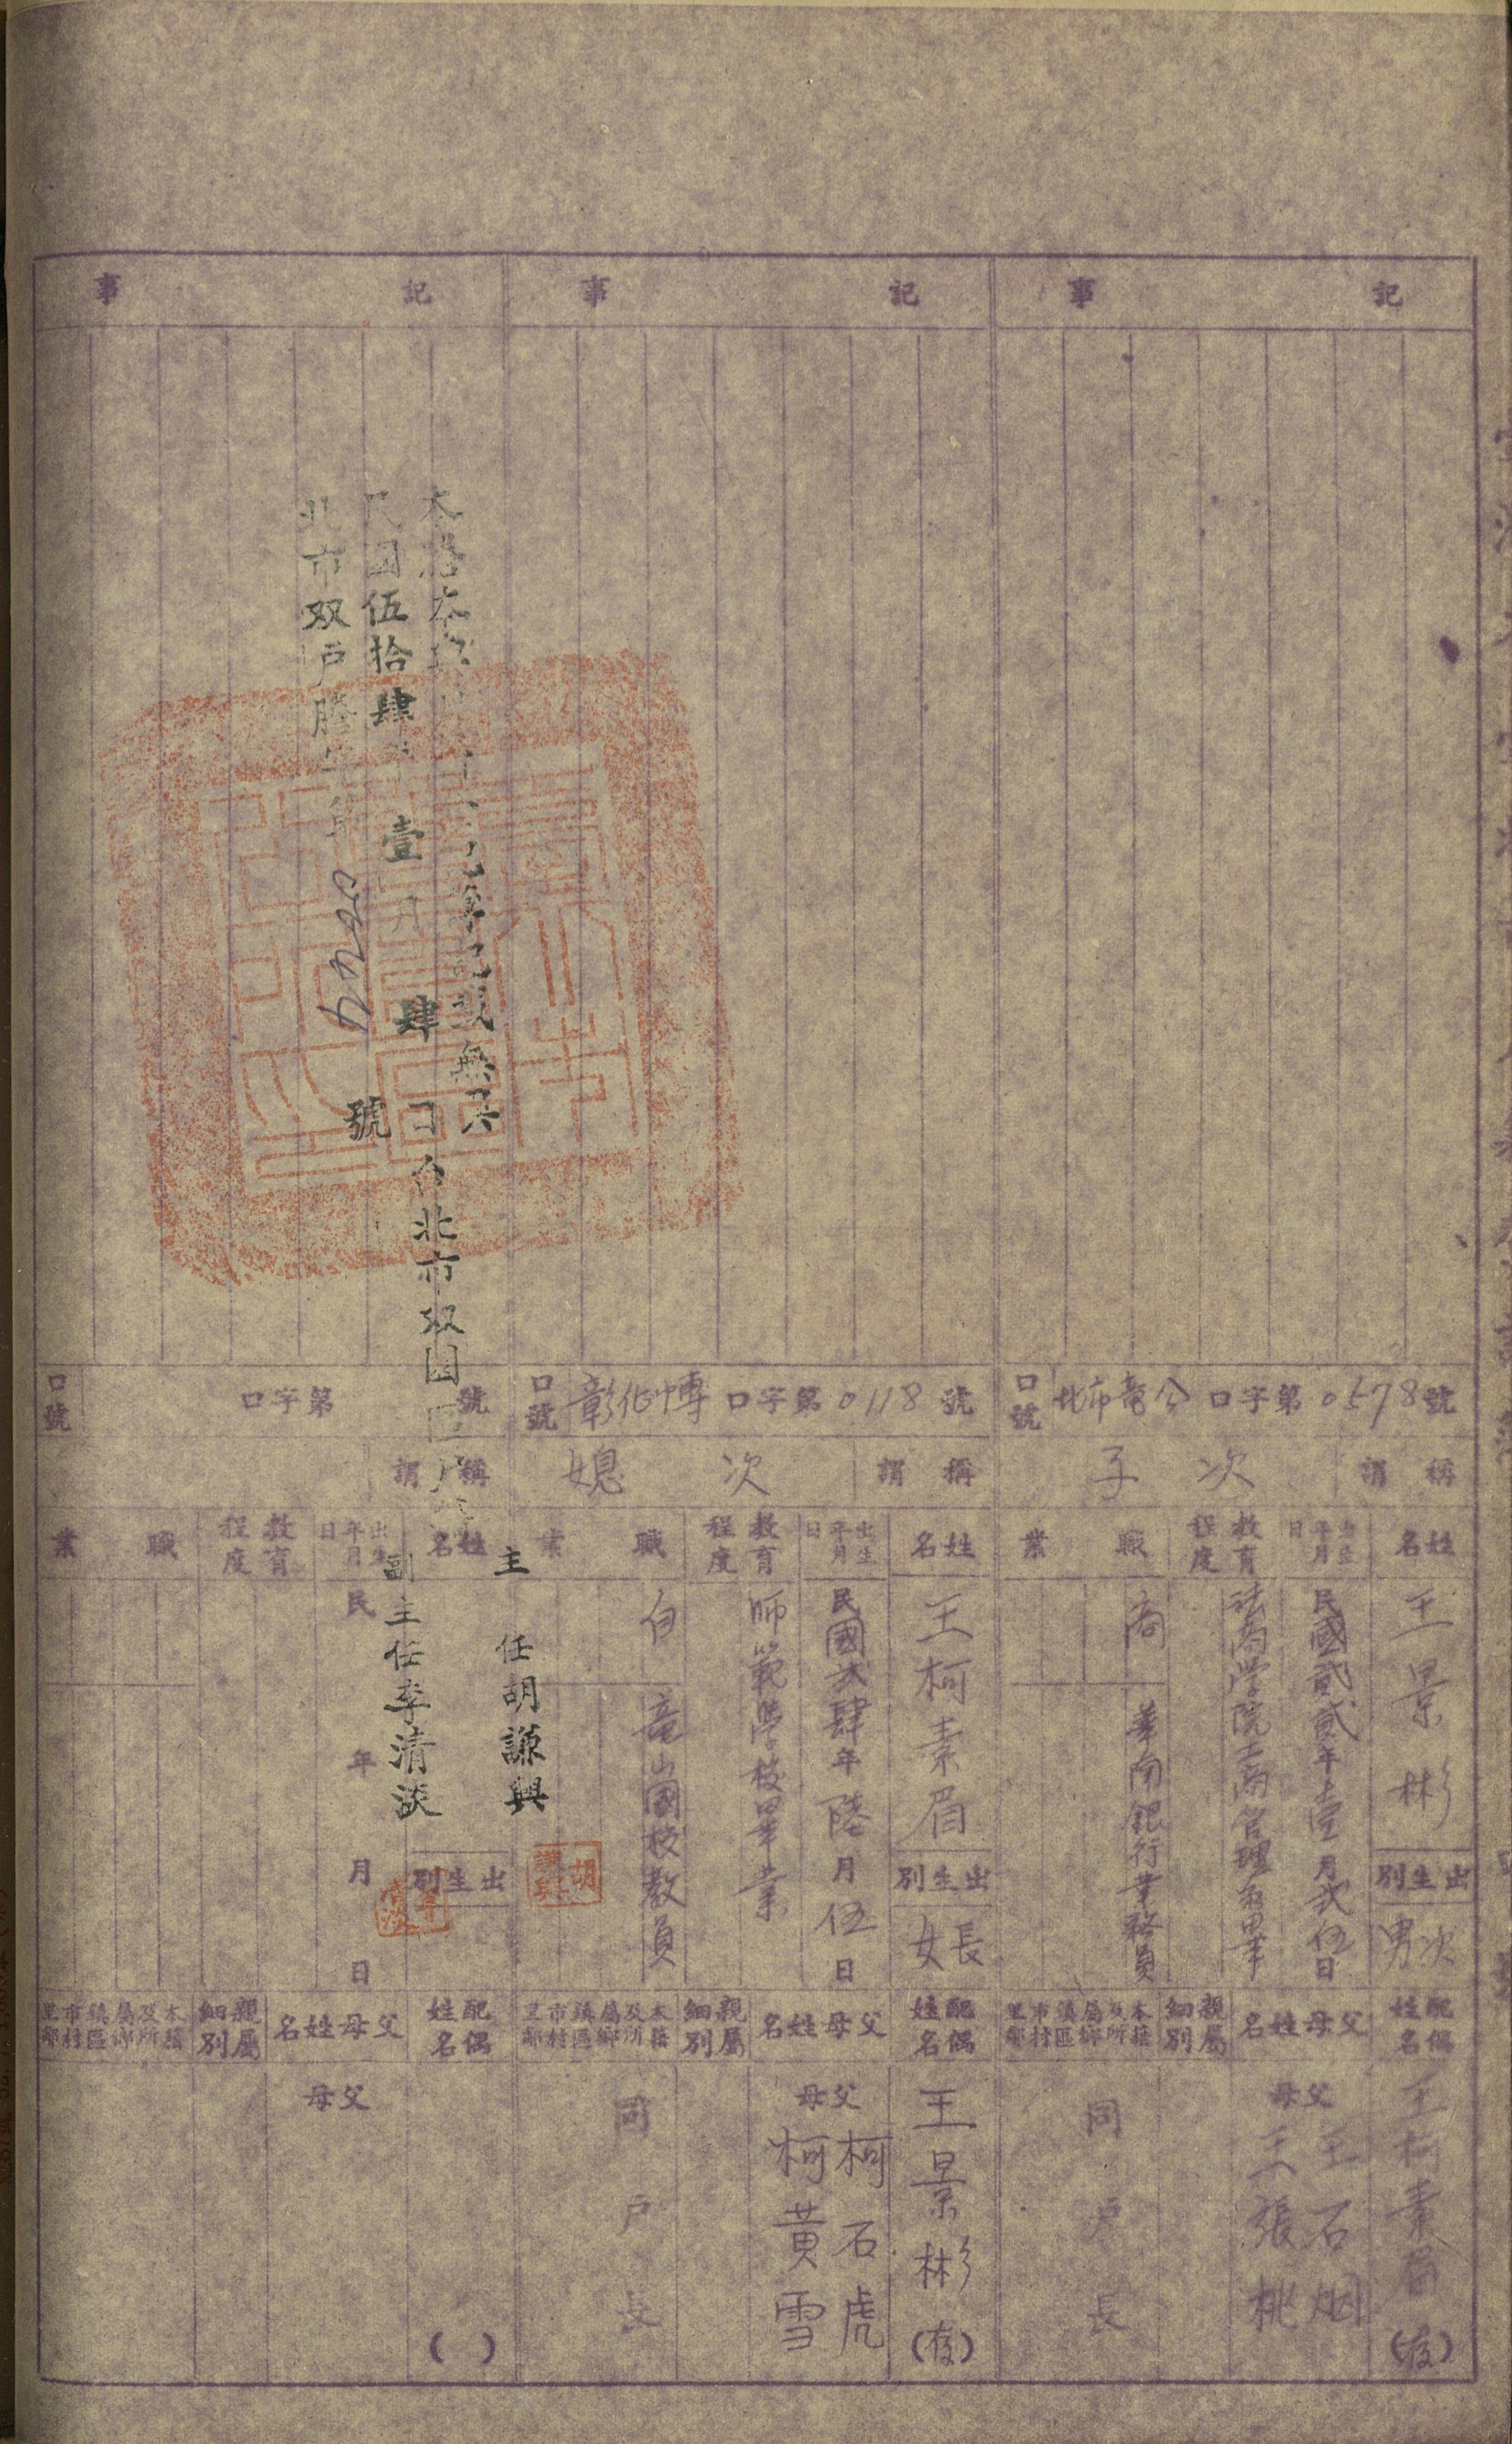 記事
口號
北市龍公口字第0578號
稱謂
次子
姓名
王景彬
出生別
次男
出生年月日
民國貳貳年壹月貳伍日
教育程度
法商學院工商管理系畢
職業
商
華南銀行業務員
配偶姓名
王柯素眉
(存)
父母姓名
父 王石烟
母 王張桃
親屬細別
本籍及所屬鄉鎮區市村里鄰
同戶長
記事
口號
彰化博口字第0118號
稱謂
次媳
姓名
王柯素眉
出生別
長女
出生年月日
民國貳肆年陸月伍日
教育程度
師範學校畢業
職業
自
龍山國校教員
配偶姓名
王景彬
(存)
父母姓名
父 柯石虎
母 柯黃雪
親屬細別
本籍及所屬鄉鎮區市村里鄰
同戶長
記事
口號
口字第 號
稱謂
姓名
出生別
出生年月日
民 年 月 日
教育程度
職業
配偶姓名
( )
父母姓名
父
母
親屬細別
本籍及所屬鄉鎮區市村里鄰
無誤
民國伍拾肆年壹月肆日台北市双園區
北市双戶謄字第 號
主任胡謙興
副主任李清淡
胡謙興